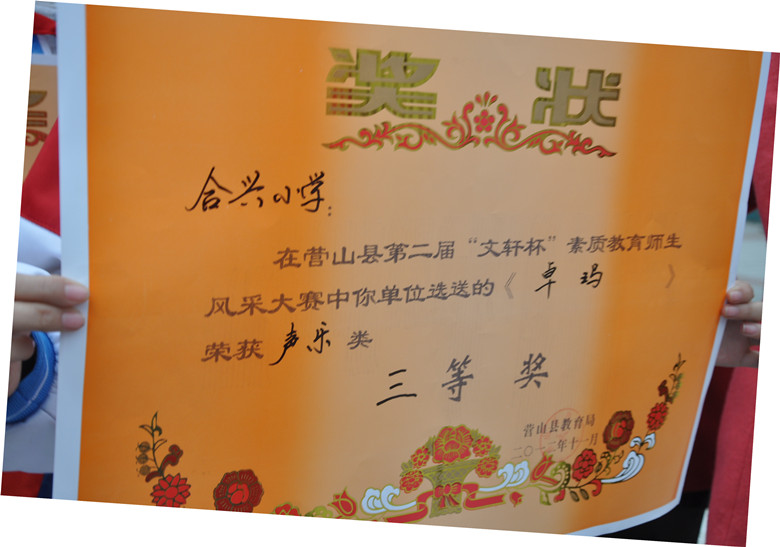 奖状
合兴小学：
在营山县第二届“文轩杯”素质教育师生
风采大赛中你单位选送的《卓玛》
荣获声乐类
三等奖
营山县教育局
二〇一二年十一月